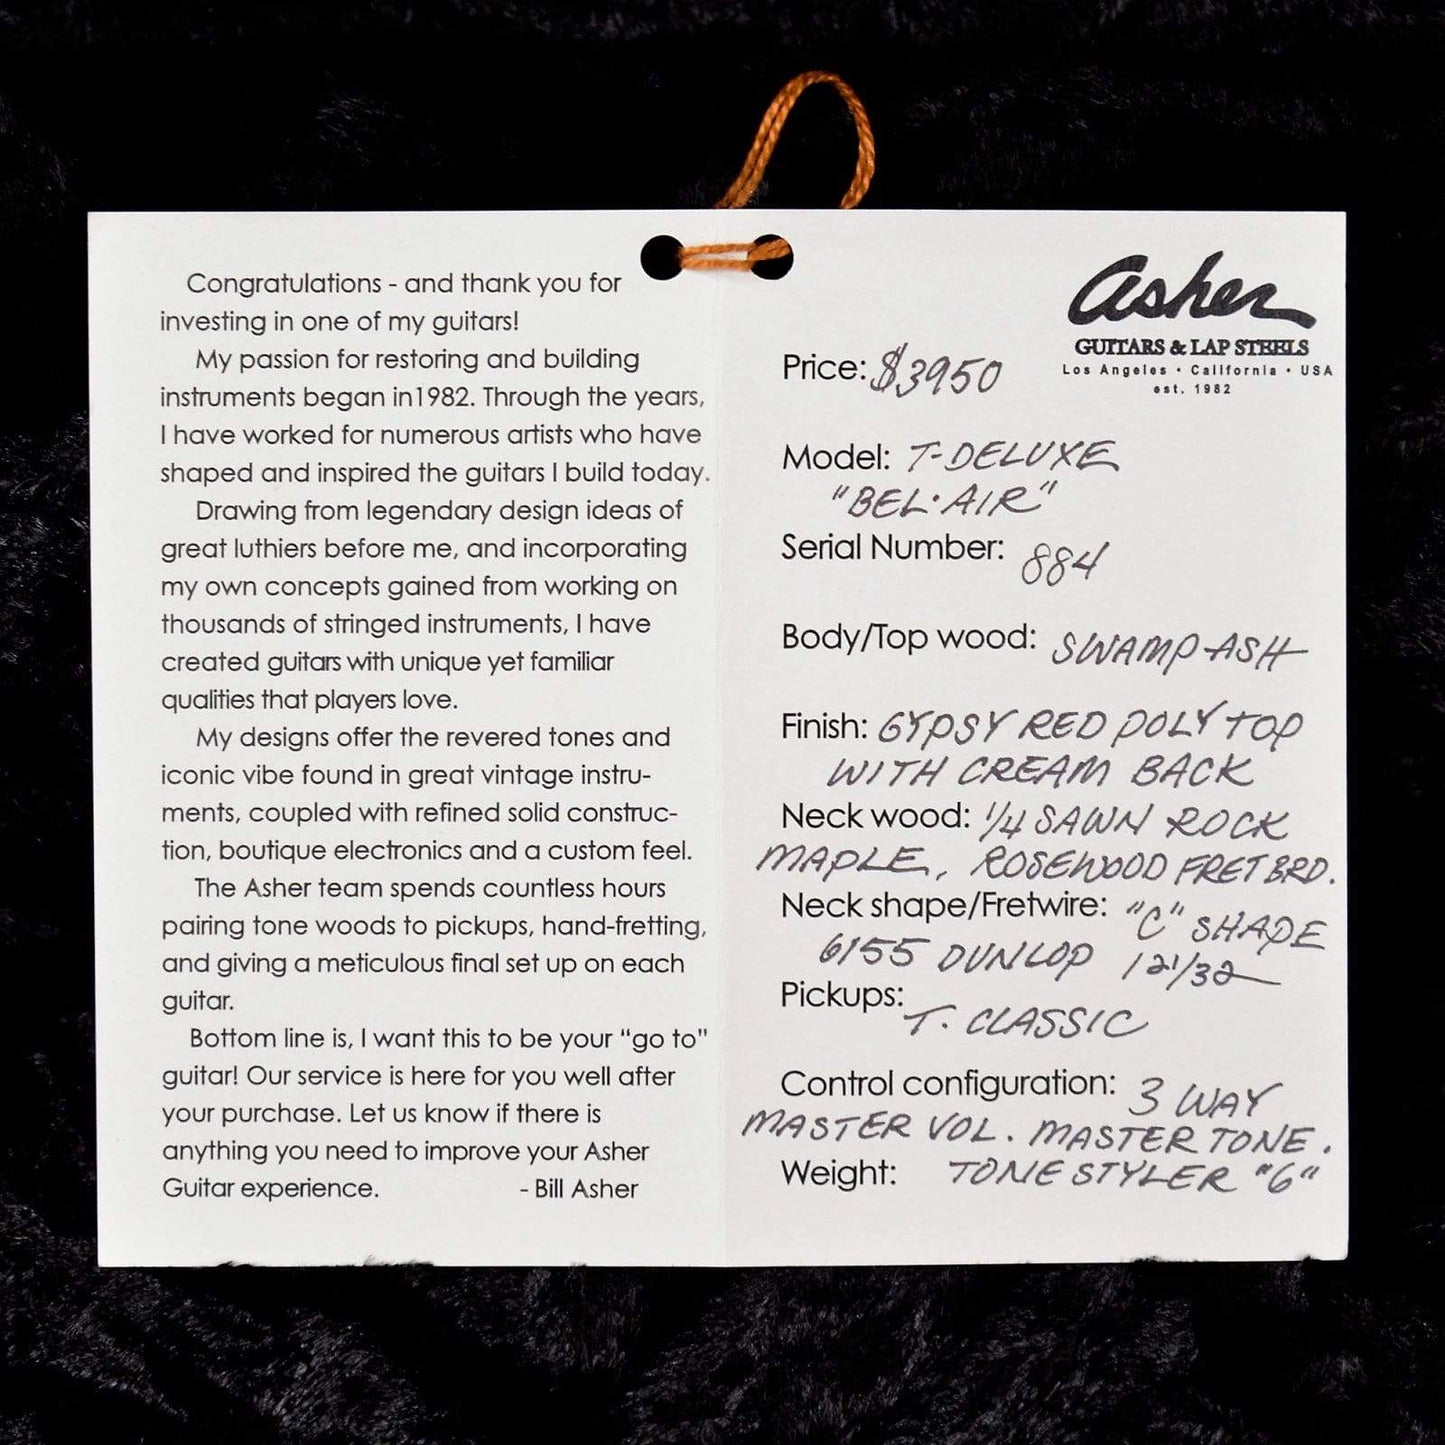 Congratulations - and thank you for
investing in one of my guitars!
My passion for restoring and building
instruments began in1982. Through the years,
I have worked for numerous artists who have
shaped and inspired the guitars I build today.
Drawing from legendary design ideas of
great luthiers before me, and incorporating
my own concepts gained from working on
thousands of stringed instruments, I have
created guitars with unique yet familiar
qualities that players love.
My designs offer the revered tones and
iconic vibe found in great vintage instru-
ments, coupled with refined solid construc-
tion, boutique electronics and a custom feel.
The Asher team spends countless hours
pairing tone woods to pickups, hand-fretting,
and giving a meticulous final set up on each
guitar.
Bottom line is, I want this to be your “go to”
guitar! Our service is here for you well after
your purchase. Let us know if there is
anything you need to improve your Asher
Guitar experience. - Bill Asher
Asher
GUITARS & LAP STEELS
Los Angeles • California • USA
est. 1982
Price: $3950
Model: T-DELUXE
"BEL·AIR"
Serial Number: 884
Body/Top wood: SWAMP ASH
Finish: GYPSY RED POLY TOP
WITH CREAM BACK
Neck wood: 1/4 SAWN ROCK
MAPLE, ROSEWOOD FRETBRD.
Neck shape/Fretwire: "C" SHAPE
6155 DUNLOP 1 21/32
Pickups: T. CLASSIC
Control configuration: 3 WAY
MASTER VOL. MASTER TONE.
Weight: TONE STYLER "6"